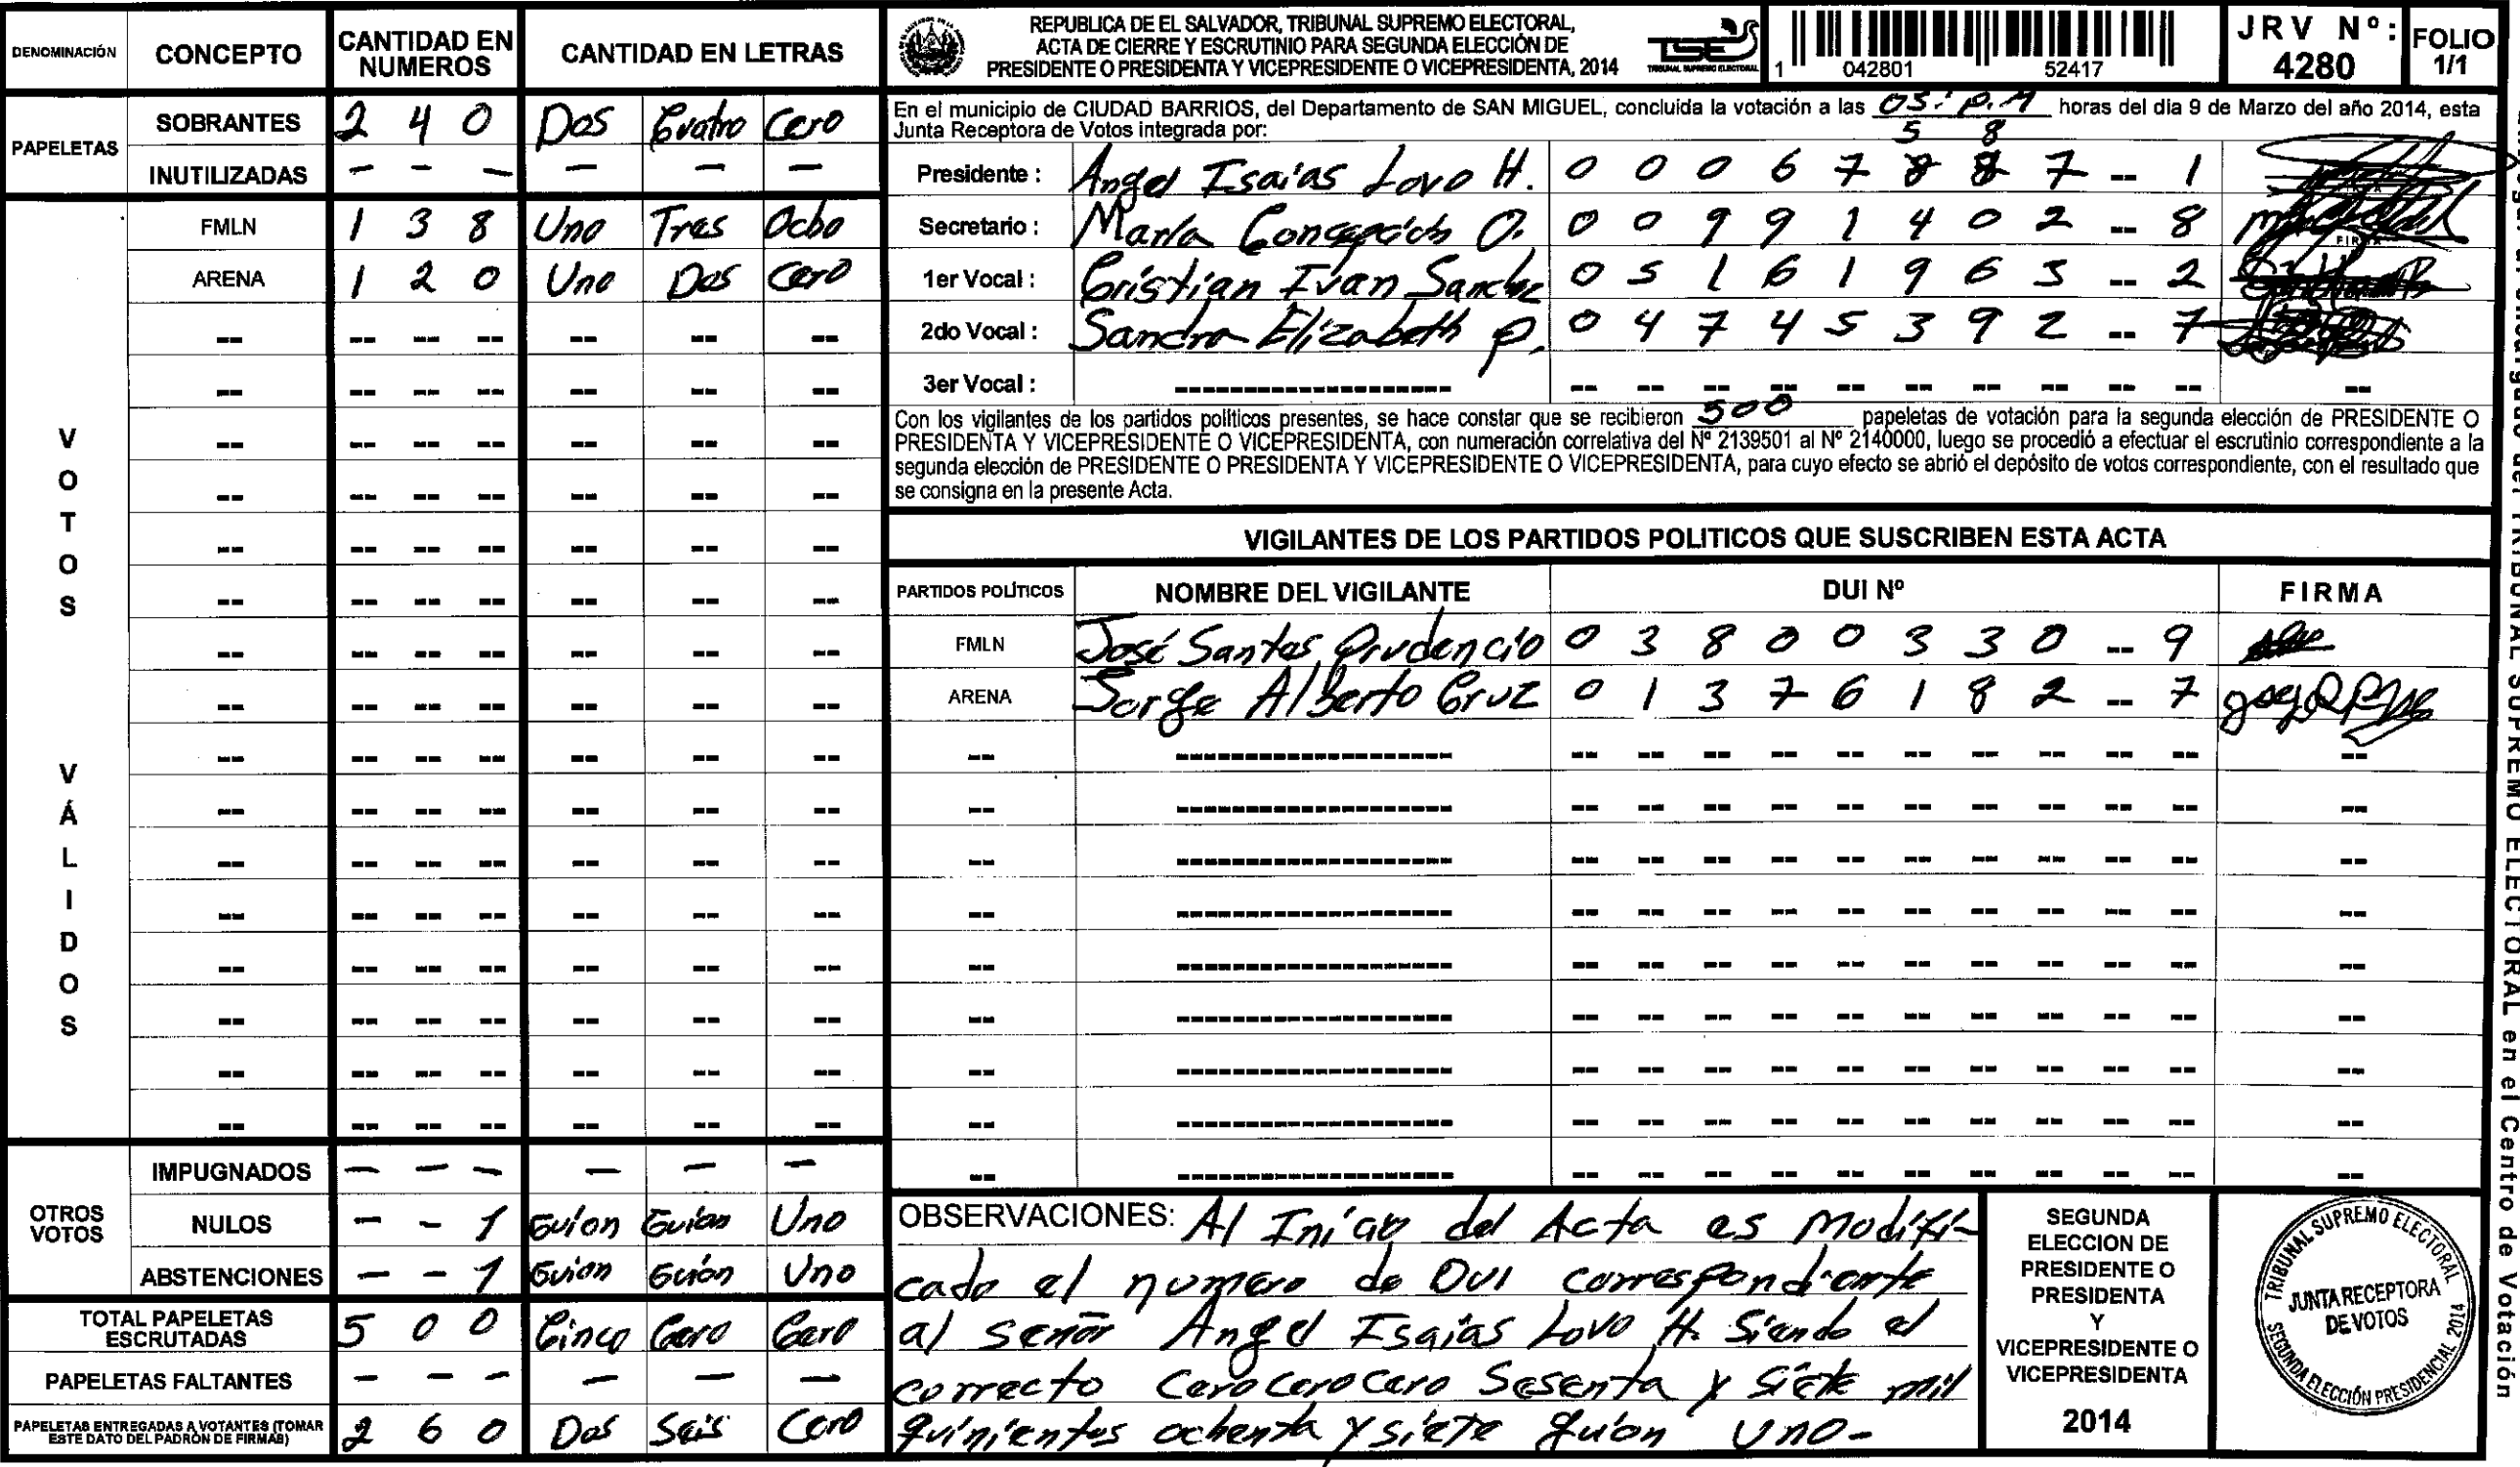 DENOMINACIÓN CONCEPTO CANTIDAD EN NUMEROS CANTIDAD EN LETRAS
PAPELETAS
SOBRANTES 2 4 0 Dos Cuatro Cero
INUTILIZADAS - - - - - -
VOTOS VÁLIDOS
FMLN 1 3 8 Uno Tres Ocho
ARENA 1 2 0 Uno Dos Cero
OTROS VOTOS
IMPUGNADOS - - - - - -
NULOS - - 1 Guion Guion Uno
ABSTENCIONES - - 1 Guion Guión Uno
TOTAL PAPELETAS ESCRUTADAS 5 0 0 Cinco Cero Cero
PAPELETAS FALTANTES - - - - - -
PAPELETAS ENTREGADAS A VOTANTES (TOMAR ESTE DATO DEL PADRÓN DE FIRMAS) 2 6 0 Dos Seis Cero
REPUBLICA DE EL SALVADOR, TRIBUNAL SUPREMO ELECTORAL,
ACTA DE CIERRE Y ESCRUTINIO PARA SEGUNDA ELECCIÓN DE
PRESIDENTE O PRESIDENTA Y VICEPRESIDENTE O VICEPRESIDENTA, 2014
TSE
TRIBUNAL SUPREMO ELECTORAL
1 042801 52417
JRV Nº: 4280
FOLIO 1/1
En el municipio de CIUDAD BARRIOS, del Departamento de SAN MIGUEL, concluida la votación a las 05: P.M horas del día 9 de Marzo del año 2014, esta
Junta Receptora de Votos integrada por:
5 8
Presidente : Angel Isaías Lovo H. 0 0 0 6 7 8 8 7 -- 1
Secretario : María Concepción O. 0 0 9 9 1 4 0 2 -- 8
FIRMA
1er Vocal : Cristian Ivan Sanchez 0 5 1 6 1 9 6 3 -- 2
2do Vocal : Sandra Elizabeth P. 0 4 7 4 5 3 9 2 -- 7
3er Vocal : -- -- -- -- -- -- -- -- -- --
Con los vigilantes de los partidos políticos presentes, se hace constar que se recibieron 500 papeletas de votación para la segunda elección de PRESIDENTE O
PRESIDENTA Y VICEPRESIDENTE O VICEPRESIDENTA, con numeración correlativa del Nº 2139501 al Nº 2140000, luego se procedió a efectuar el escrutinio correspondiente a la
segunda elección de PRESIDENTE O PRESIDENTA Y VICEPRESIDENTE O VICEPRESIDENTA, para cuyo efecto se abrió el depósito de votos correspondiente, con el resultado que
se consigna en la presente Acta.
VIGILANTES DE LOS PARTIDOS POLITICOS QUE SUSCRIBEN ESTA ACTA
PARTIDOS POLÍTICOS NOMBRE DEL VIGILANTE DUI Nº FIRMA
FMLN José Santos Prudencio 0 3 8 0 0 3 3 0 -- 9
ARENA Jorge Alberto Cruz 0 1 3 7 6 1 8 2 -- 7
OBSERVACIONES: Al Inicio del Acta es Modifi-
cado el numero de DUI correspondiente
al señor Angel Isaías Lovo H. Siendo el
correcto Cero Cero Cero Sesenta y Siete mil
quinientos ochenta y siete guión Uno-
SEGUNDA
ELECCION DE
PRESIDENTE O
PRESIDENTA
Y
VICEPRESIDENTE O
VICEPRESIDENTA
2014
TRIBUNAL SUPREMO ELECTORAL
JUNTA RECEPTORA
DE VOTOS
SEGUNDA ELECCIÓN PRESIDENCIAL 2014
encargado del TRIBUNAL SUPREMO ELECTORAL en el Centro de Votación